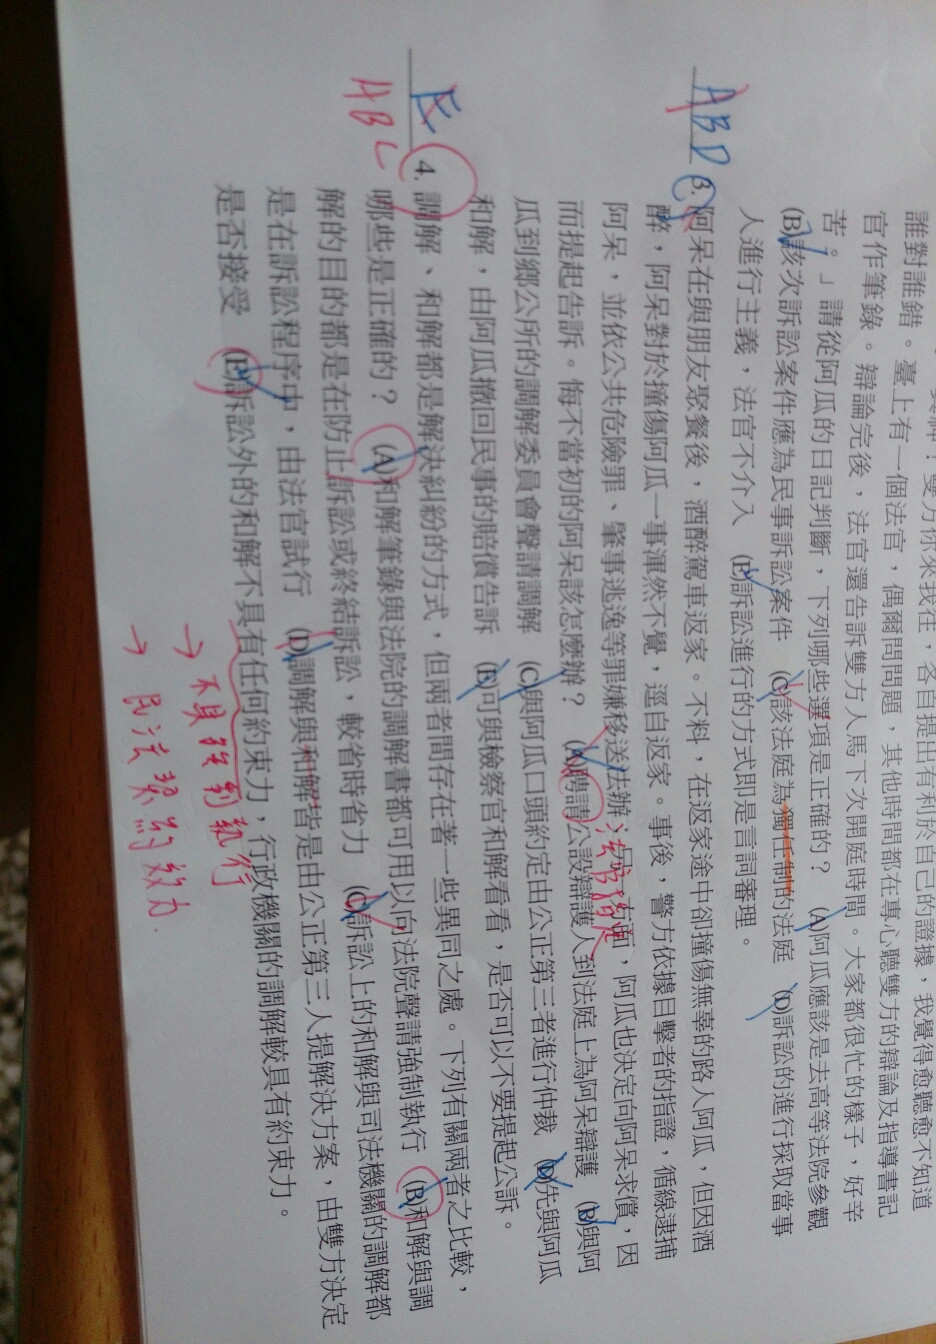 誰對誰錯。臺上有一個法官，偶爾問問題，其他時間都在專心聽雙方的辯論及指導書記
官作筆錄。辯論完後，法官還告訴雙方人馬下次開庭時間。大家都很忙的樣子，好辛
苦。」請從阿瓜的日記判斷，下列哪些選項是正確的？ (A)阿瓜應該是去高等法院參觀
(B)該次訴訟案件應為民事訴訟案件 (C)該法庭為獨任制的法庭 (D)訴訟的進行採取當事
人進行主義，法官不介入 (E)訴訟進行的方式即是言詞審理。
ABD 3. 阿呆在與朋友聚餐後，酒醉駕車返家。不料，在返家途中卻撞傷無辜的路人阿瓜，但因酒
醉，阿呆對於撞傷阿瓜一事渾然不覺，逕自返家。事後，警方依據目擊者的指證，循線逮捕
阿呆，並依公共危險罪、肇事逃逸等罪嫌移送法辦；另方面，阿瓜也決定向阿呆求償，因
而提起告訴。悔不當初的阿呆該怎麼辦？ (A)聘請公設辯護人到法庭上為阿呆辯護 (B)與阿
瓜到鄉公所的調解委員會聲請調解 (C)與阿瓜口頭約定由公正第三者進行仲裁 (D)先與阿瓜
和解，由阿瓜撤回民事的賠償告訴 (E)可與檢察官和解看看，是否可以不要提起公訴。
E
ABC
4. 調解、和解都是解決糾紛的方式，但兩者間存在著一些異同之處。下列有關兩者之比較，
哪些是正確的？ (A)和解筆錄與法院的調解書都可用以向法院聲請強制執行 (B)和解與調
解的目的都是在防止訴訟或終結訴訟，較省時省力 (C)訴訟上的和解與司法機關的調解都
是在訴訟程序中，由法官試行 (D)調解與和解皆是由公正第三人提解決方案，由雙方決定
是否接受 (E)訴訟外的和解不具有任何約束力，行政機關的調解較具有約束力。
→ 不具強制執行
→ 民法契約效力.